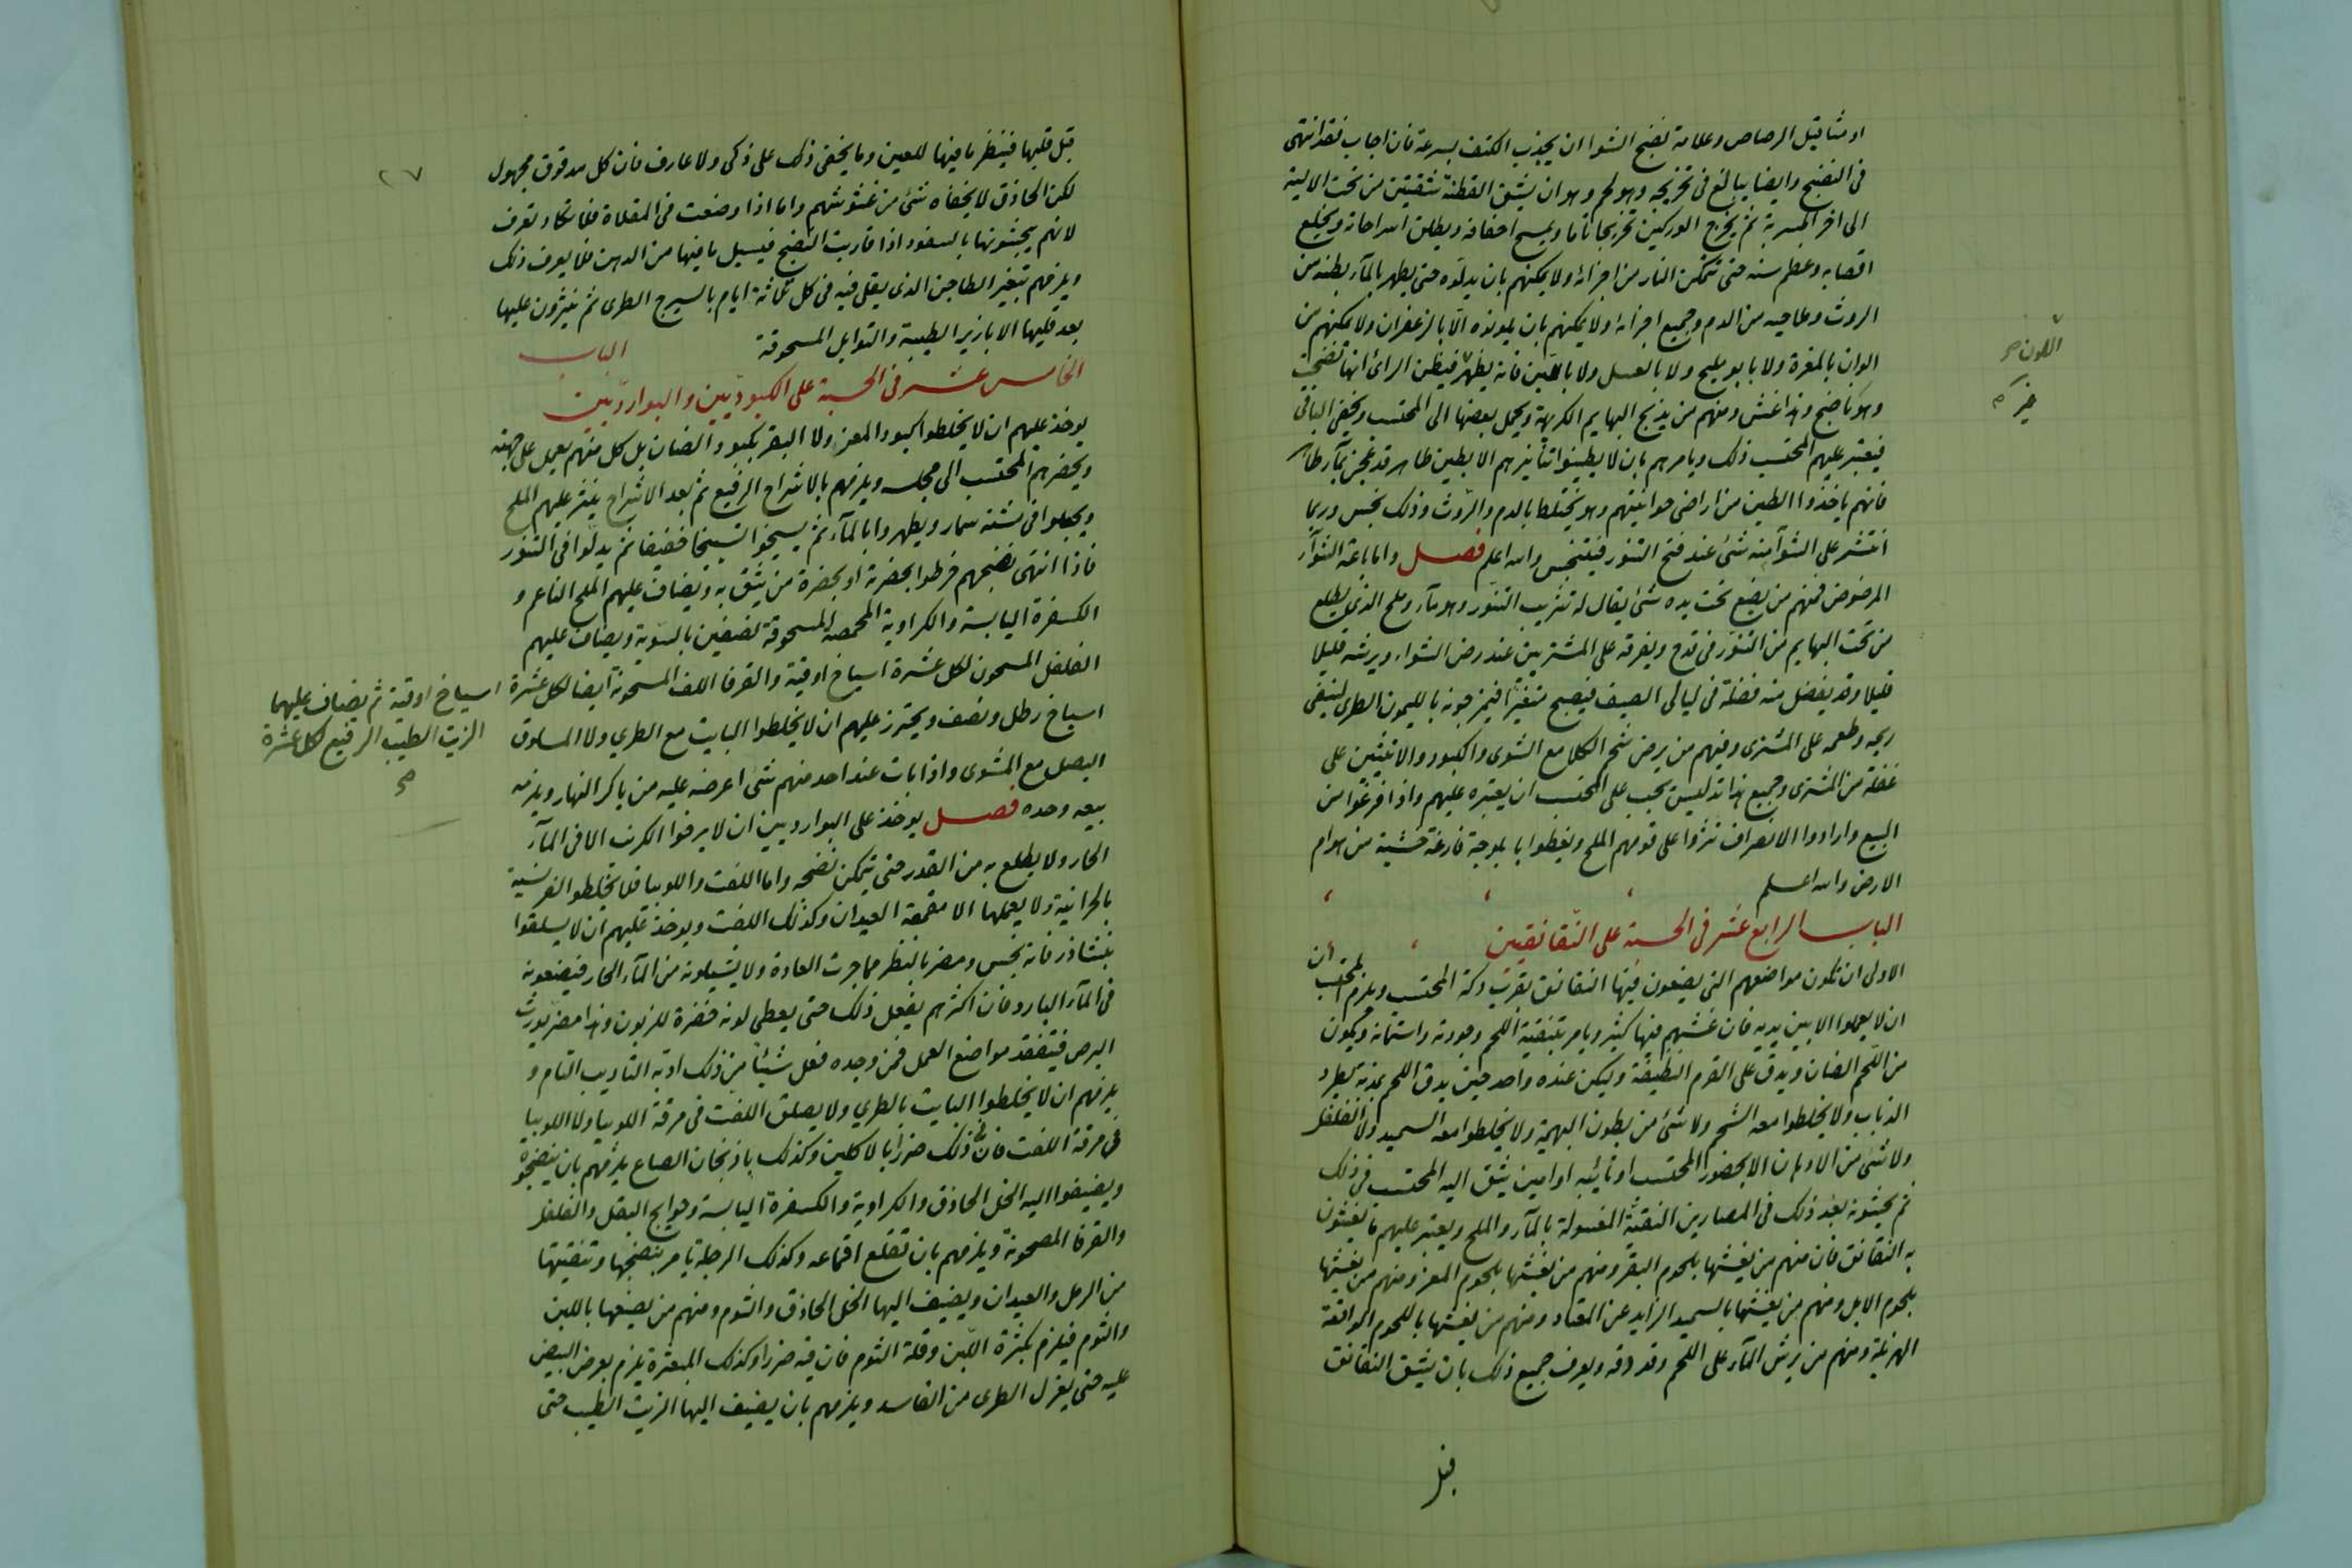 او مثاقيل الرصاص وعلامة نضج الشوا ان يجذب الكتف بسرعة فان اجاب فقد انتهى
فى النضج وايضا يبالغ فى تخريجه وهو لحم وهو ان يشق القطنة شقتين من تحت الالية
الى اخر ثم يخرج الوركين تخريجا تاما ويمسح اخفافه ويطلق ويخلع
اقصابه وعظم سنه حتى تتمكن النار من اجزائه ولا يمكنهم بان يدلوه حتى يطهر بالمآء بطنه من
الروث وطاحيه من الدم وجميع اجزائه ولا يمكنهم بان يلونوه الّا بالزعفران ولا يمكنهم من
الوان بالمغرة ولا بابو مليح ولا بالعسل ولا باللبن فانه يظهر فيظن الرائى انها نضجت
اللون صح
وهو ناضج وهذا غش ومنهم من يذبح البهايم الكريهة ويحمل بعضها الى المحتسب ويخفى الباقى
فيعتبر عليهم المحتسب ذلك ويامرهم بان لا يطينوا تنانيرهم الا بطين طاهر قد عجن بمآء طاهر
فانهم ياخذوا الطين من اراضى حوانيتهم وهو يختلط بالدم والروث وذلك نجس وربما
انتشر على الشوآ منه شئ عند فتح التنور فيتنجس والله اعلم فصل واما باعة الشوآء
المرضوض فمنهم من يضع تحت يده شئ يقال له تثريب التنور وهو مآء وملح الذى يطلع
من تحت البهايم من التنور فى قدح ويفرقه على المشتريين عند رض الشواء ويرشه قليلا
قليلا وقد يفضل منه فضلة فى ليالى الصيف فيصبح متغيرا فيمزجونه بالليمون الطرى لينفى
ريحه وطعمه على المشترى ومنهم من يرض شحم الكلا مع الشوى والكبود والانثيين على
غفلة من المشترى وجميع هذا تدليس يجب على المحتسب ان يعتبره عليهم واذا فرغوا من
البيع وارادوا الانصراف نثروا على قومهم الملح ويغطوا بابلوجة فارغة خشية من هوام
الارض والله اعلم
الباب الرابع عشر فى الحسبة على النقانقيين
الاولى ان تكون مواضعهم التى يضعون فيها النقانق بقرب دكة المحتسب ويلزم المحتسب ان
ان لا يعملوا الا بين يديه فان غشهم فيها كثير ويامر بتنقية اللحم وجودته واستمانه ويكون
من اللحم الضان ويدق على القرم النظيفة وليكن عنده واحد حين يدق اللحم بمذبه يطرد
الذباب ولا يخلطوا معه الشحم ولا شئ من بطون البهيمة ولا يخلطوا معه السميد ولا الفلفل
ولا شئ من الاوان الا بحضور المحتسب او نائبه او امين يثق اليه المحتسب فى ذلك
ثم يحشونه بعد ذلك فى المصارين النقية المغسولة بالمآء والملح ويعتبر عليهم ما يغشون
به النقانق فان منهم من يغشها بلحوم البقر ومنهم من يغشها بلحوم المعز ومنهم من يغشها
بلحوم الابل ومنهم من يغشها بالسميد الزايد عن المعتاد ومنهم من يغشها باللحوم الواقعة
الهزيلة ومنهم من يرش المآء على اللحم وقد دقه ويعرف جميع ذلك بان يشق النقانق
قبل
٢٧
قبل قليها فينظر ما فيها للعين وما يخفى ذلك على ذكى ولا عارف فان كل مدقوق مجهول
لكن الحاذق لا يخفاه شئ من غشوشهم واما اذا وضعت فى المقلاة فلا تكاد تعرف
لانهم يبخشونها بالسفود اذا قاربت النضج فيسيل ما فيها من الدهن فلا يعرف ذلك
ويلزمهم بتغيير الطاجن الذى يقلى فيه فى كل ثلاثة ايام بالسيرج الطرى ثم ينثرون عليها
بعد قليها الابازير الطيبة والتوابل المسحوقة الباب
الخامس عشر فى الحسبة على الكبوديّين والبوارديّين
يوخذ عليهم ان لا يخلطوا كبود المعز ولا البقر بكبود الضان بل كل منهم يعمل على جهته
ويحضرهم المحتسب الى مجلسه ويلزمهم بالاشراح الرفيع ثم بعد الاشراح ينثر عليهم الملح
ويجعلوا فى سمار ويطهروا بالمآء ثم يسيخوا تسييخا خفيفا ثم يدلوا فى التنور
فاذا انتهى نضجهم خرطوا بحضرته او بحضرة من يثق به ويضاف عليهم الملح الناعم و
الكسفرة اليابسة والكراوية المحمصة المسحوقة نصفين بالسوية ويضاف عليهم
الفلفل المسحون لكل عشرة اسياخ اوقية والقرفا اللف المسحونة ايضا لكل عشرة
اسياخ اوقية ثم يضاف عليهما
الزيت الطيب الرفيع لكل عشرة
صح
اسياخ رطل ونصف ويحترز عليهم ان لا يخلطوا البايت مع الطرى ولا المسلوق
البصل مع المشوى واذا بات عند احد منهم شئ اعرضه عليه من باكر النهار ويلزمه
بيعه وحده فصل يوخذ على البوارديين ان لا يرفوا الكرنب الا فى المآء
الحار ولا يطلع به من القدر حتى يتمكن نضجه واما اللفت واللوبيا فلا تخلطوا الفرنسية
بالحرانية ولا يعملها الا مقمعة العيدان وكذلك اللفت ويوخذ عليهم ان لا يسلقوا
بنشادر فانه نجس ومضر بالنظر مما جرت العادة ولا يشيلونه من المآء الحار فيضعونه
فى المآء البارد فان اكثرهم يفعل ذلك حتى يعطى لونه خضرة للزبون وهذا مضر يورث
البرص فيتفقد مواضع العمل فمن وجده فعل شيئا من ذلك ادبه التاديب التام و
يلزمهم ان لا يخلطوا البايت بالطرى ولا يصلق اللفت فى مرقة اللوبيا ولا اللوبيا
فى مرقة اللفت فان فى ذلك ضررا بالاكلين وكذلك باذنجان الصاع يلزمهم بان ينضجوه
ويضيفوا اليه الخل الحاذق والكراوية والكسفرة اليابسة وحوايج البقل والفلفل
والقرفا المصحونة ويلزمهم بان تقلع اقماعه وكذلك الرجلة يامر بنضجها وتنقيتها
من الرمل والعيدان ويضيف اليها الخل الحاذق والثوم ومنهم من يضعها باللبن
والثوم فيلزم بكثرة اللبن وقلة الثوم فان فيه ضررا وكذلك المبعثرة يلزم بعرض البيض
عليه حتى يعزل الطرى من الفاسد ويلزمهم بان يضيف اليها الزيت الطيب حتى